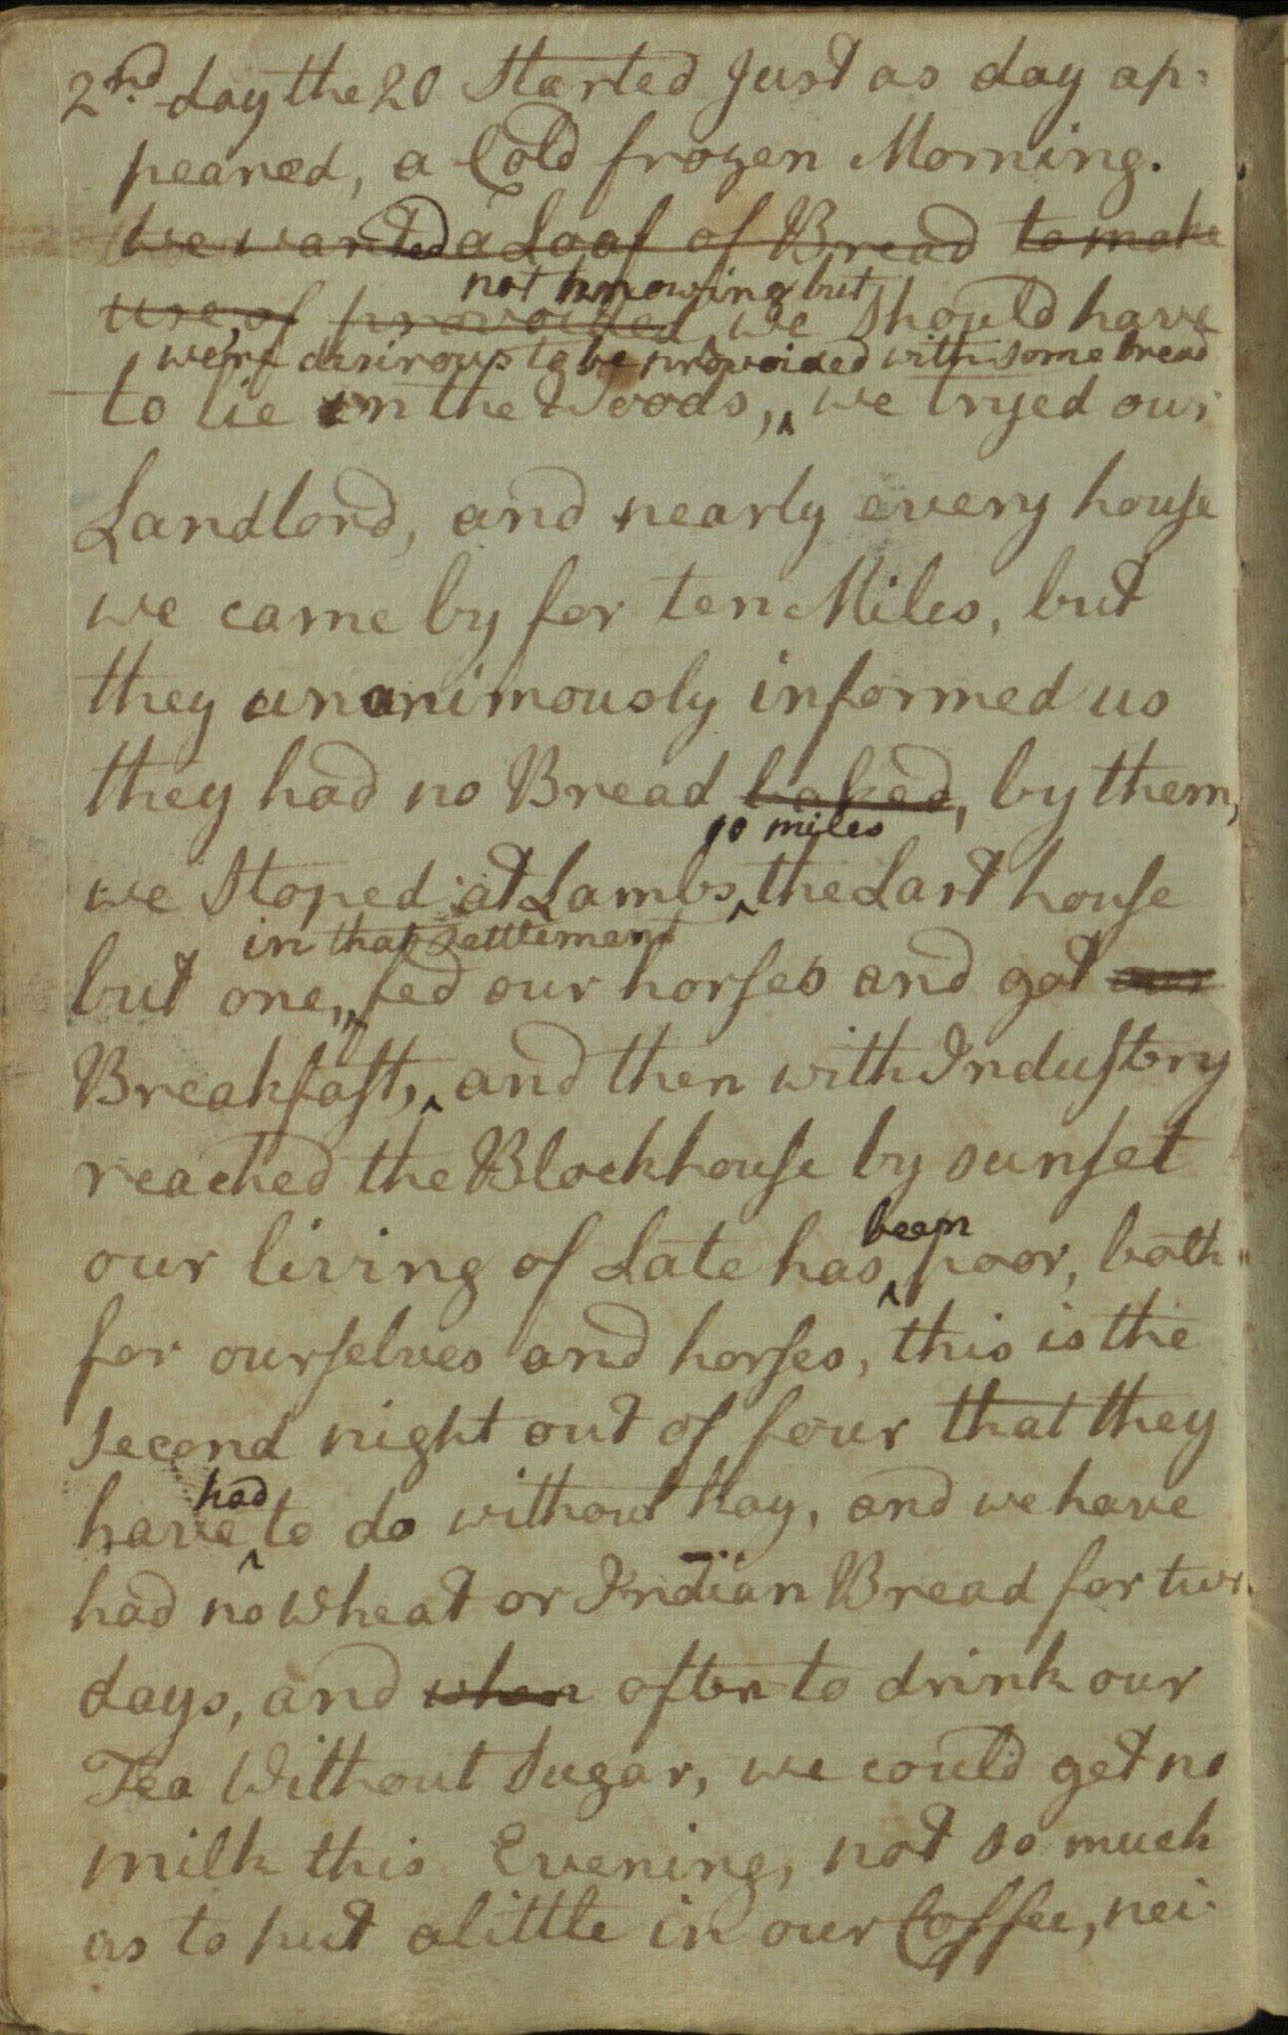 2nd day the 20 Started Just as day ap=
peared, a Cold frozen Morning.
we wanted a Loaf of Bread to make
not knowing but
use of provoided, we should have
were desirous to be provoided with some bread
to lie in the Woods, ^ we tryed our
Landlord, and nearly every house
we came by for ten Miles, but
they unanimously informed us
they had no Bread baked, by them,
10 miles
we Stoped at Lambs ^ the Last house
in that settlement
but one, fed our horses and got our
Breakfast, ^ and then with Industry
reached the Blockhouse by sunset
been
our living of Late has ^ poor, both
for ourselves and horses, this is the
Second night out of four that they
had
have ^ to do without hay, and we have
had no Wheat or Indian Bread for two
days, and when often to drink our
Tea Without Sugar, we could get no
milk this Evening, not so much
as to put a little in our Coffee, nei-